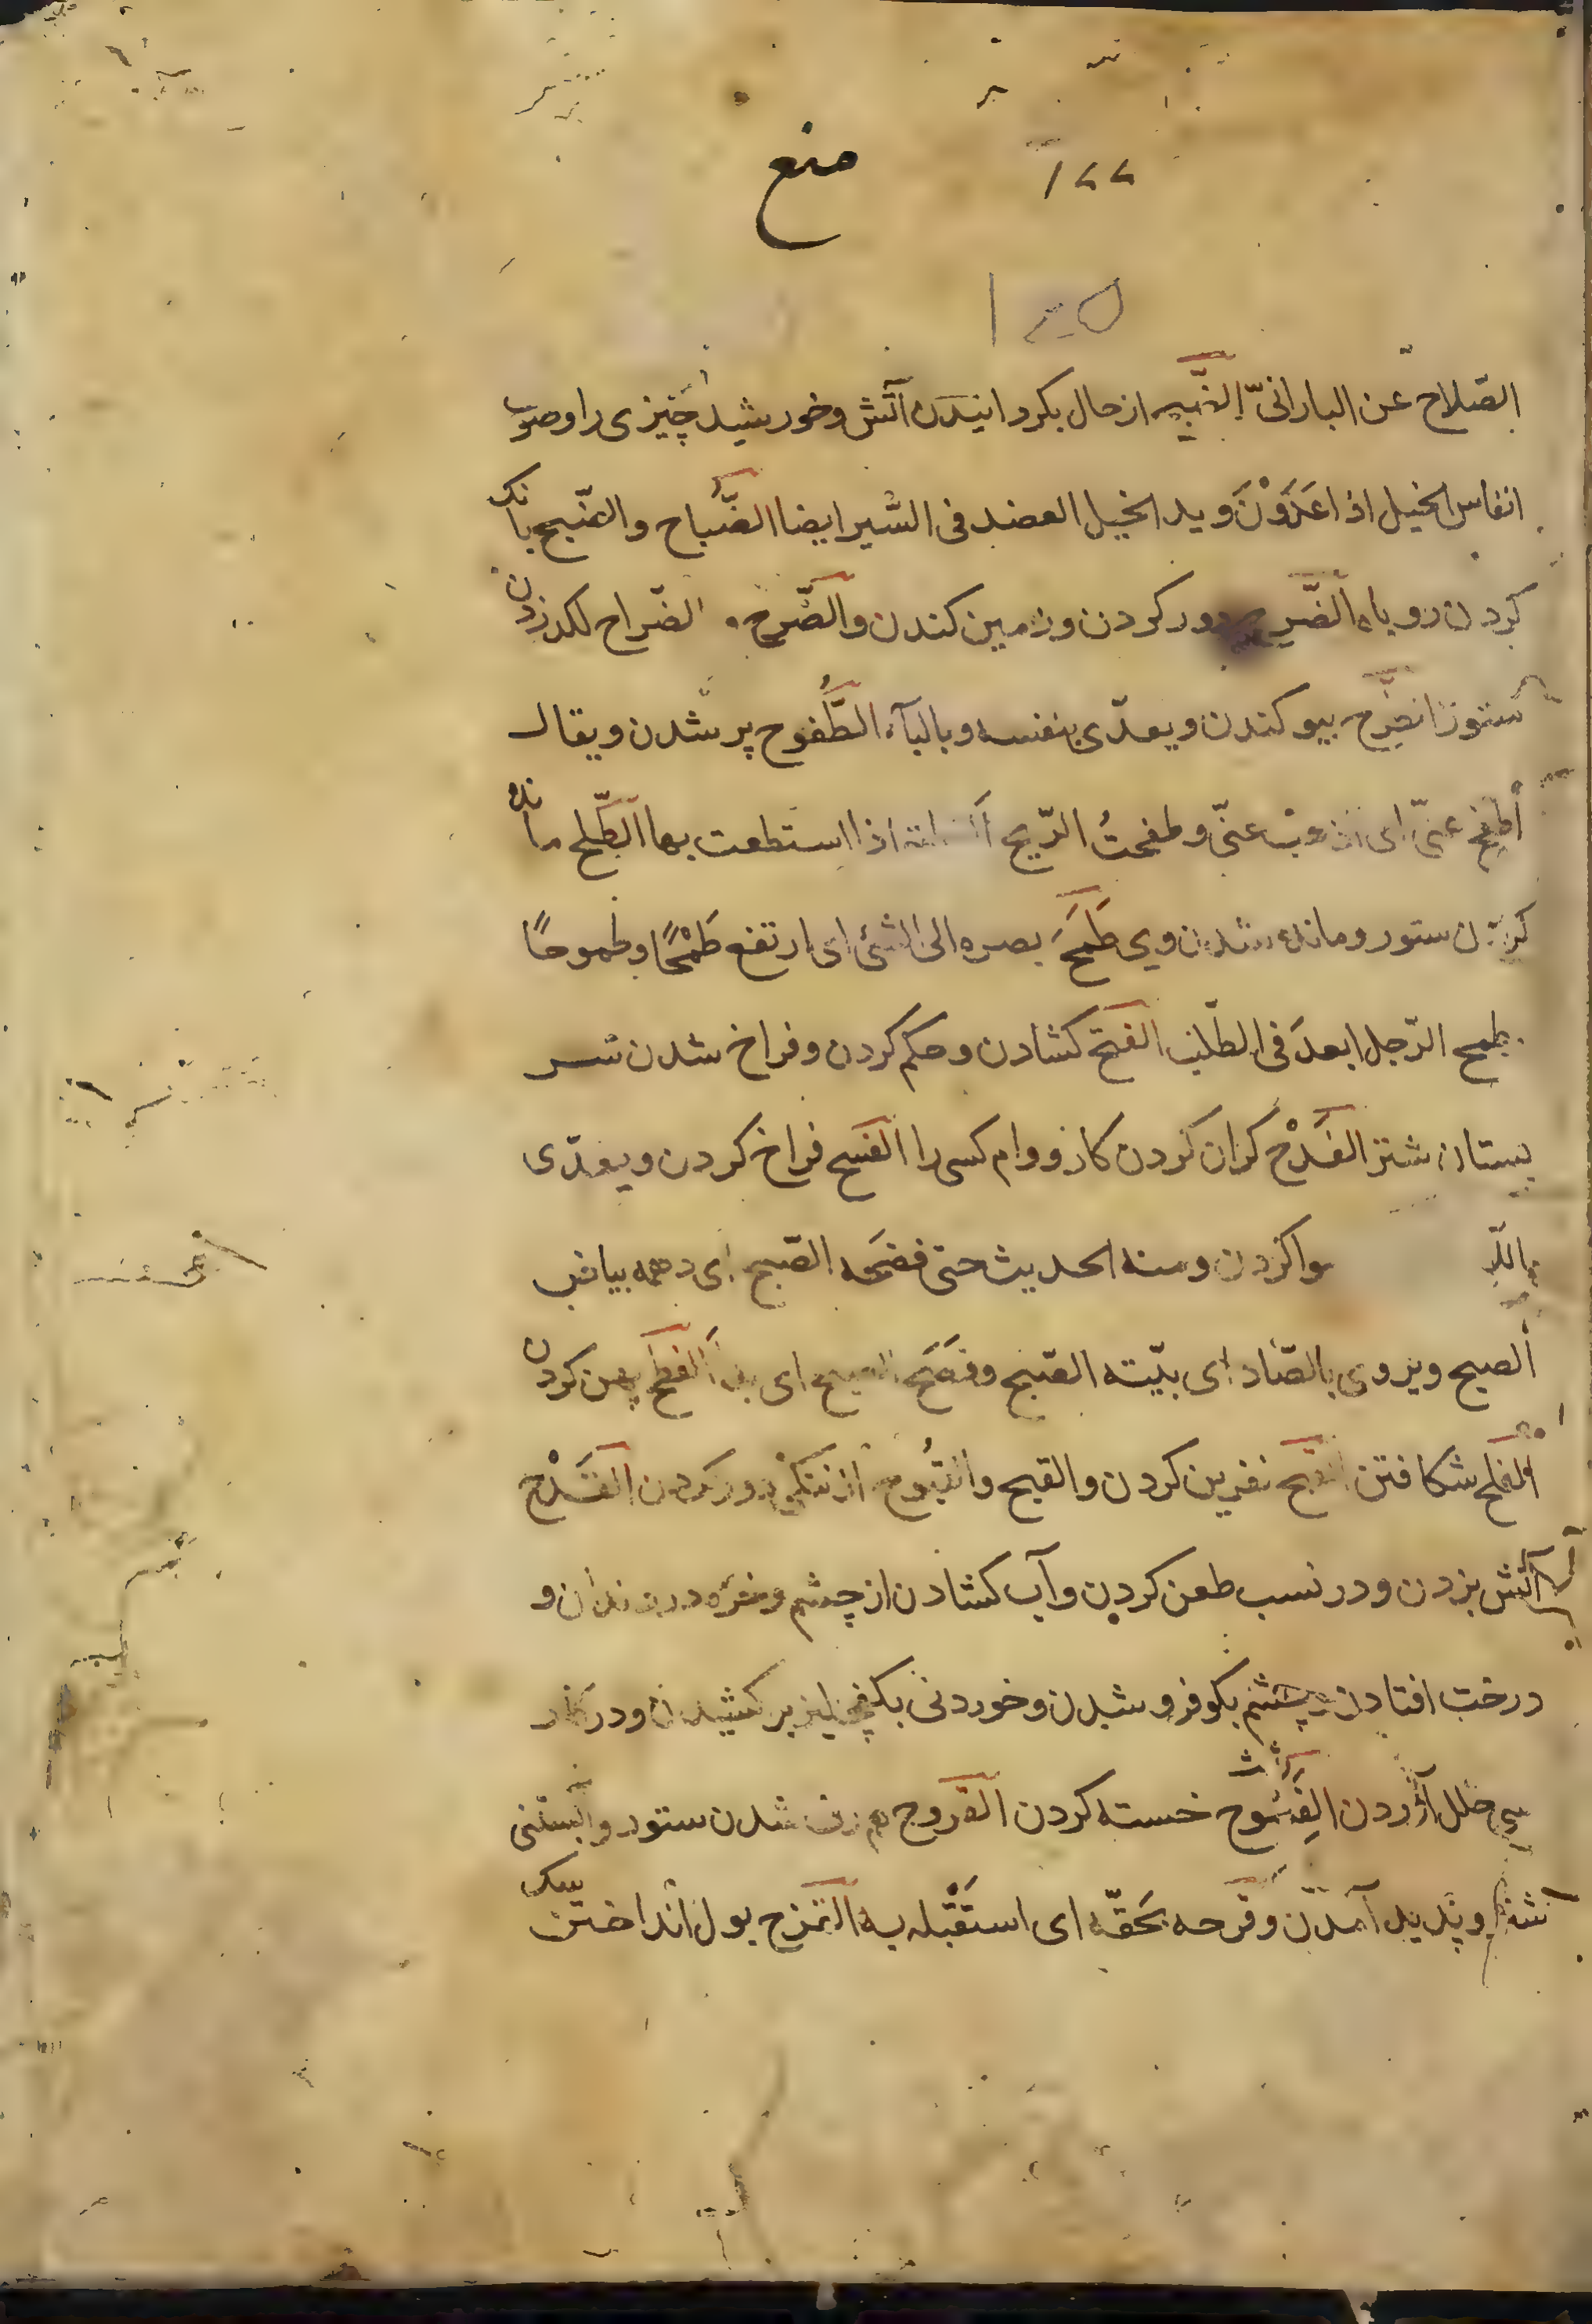 منع
۱۲۲
الصّلاح عن البارانیّ الضّبح از حال بکردانیدن آتش وخورشید چیزی را وصوت
انفاس الخیل اذا عَدَوْنَ وید الخیل العضد فی السّیر ایضا الضّباح والضّبح بانک
کردن روباه الضّرح دور کردن وزمین کندن والضّرح الضّراح لکد زدن
ستور الطرح بیوکندن ویعدّی بنفسه وبالبآء الطُّفوح پر شدن ویقال
اطفح عنّی ای اذهب عنّی وطفحتُ الرّیح اذا استطعت بها الطّلح مانده
کردن ستور ومانده شدن وی طَمَحَ بصره الی الشئ ای ارتفع طَمْحًا وطموحًا
طمح الرّجل ابعدَ فی الطّلب الفتح کشادن وحکم کردن وفراخ شدن سر
پستان شتر الفَدْح کران کردن کار ووام کسی را الفسح فراخ کردن ویعدّی
باللام واکردن ومنه الحدیث حتی فضحَه الصّبح ای دهمه بیاض
الصبح ویروی بالصّاد ای بیّته الصّبح وفضَحَ الصبح ای بدا الفطح پهن کردن
الفلح شکافتن القبح نفرین کردن والقبح والقبُوح از نیکی دور کردن القَدْح
آتش بزدن ودر نسب طعن کردن وآب کشادن از چشم وخوره در دندان و
درخت افتادن وچشم بکو فرو شدن وخوردنی بکفچلیز برکشیدن ودر کار
خلل آوردن القرح خسته کردن القروح شدن ستور وآبستنی
شتر وپدید آمدن وقرحه بحقّه ای استَقْبله به القزح بول انداختن سک